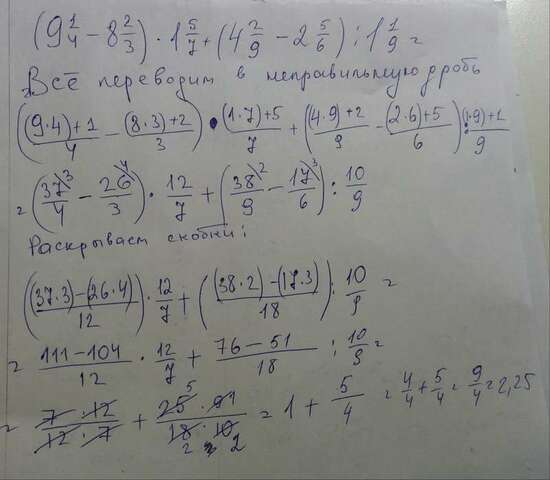 (9 1/4 − 8 2/3) · 1 5/7 + (4 2/9 − 2 5/6) : 1 1/9 =
Всё переводим в неправильную дробь
(((9·4)+1)/4 − ((8·3)+2)/3) · ((1·7)+5)/7 + (((4·9)+2)/9 − ((2·6)+5)/6) : ((1·9)+1)/9
= (37/4 \3 − 26/3 \4) · 12/7 + (38/9 \2 − 17/6 \3) : 10/9
Раскрываем скобки:
(((37·3)−(26·4))/12) · 12/7 + (((38·2)−(17·3))/18) : 10/9 =
= (111−104)/12 · 12/7 + (76−51)/18 : 10/9 =
= (7·12)/(12·7) + (25 5 · 9 1)/(18 2 · 10 2) = 1 + 5/4 = 4/4 + 5/4 = 9/4 = 2,25